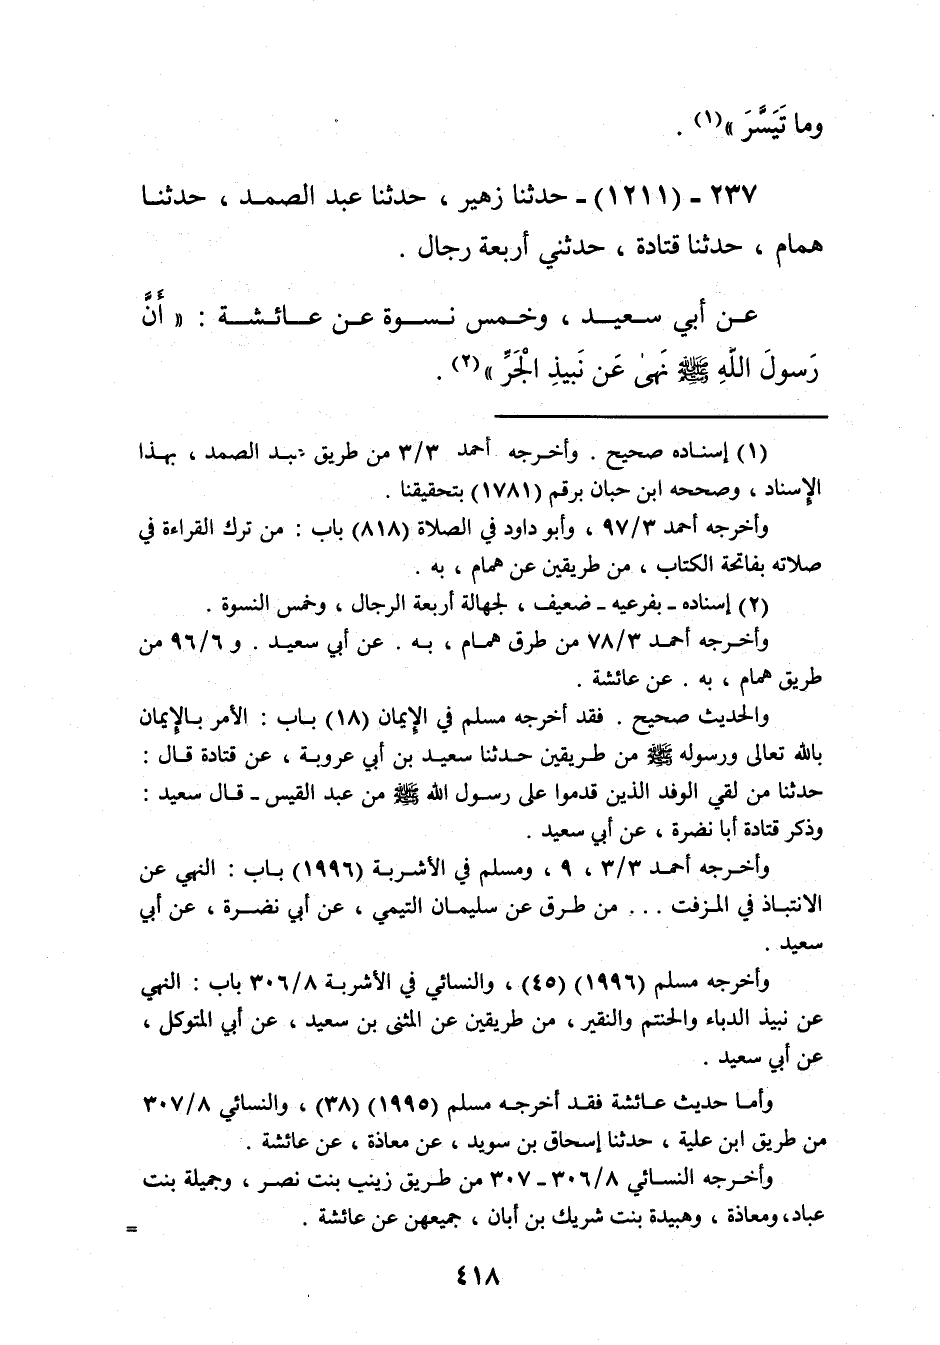 وما تَيَسَّرَ »(١) .
٢٣٧ ـ (١٢١١) ـ حدثنا زهير ، حدثنا عبد الصمـد ، حدثنـا
همام ، حدثنا قتادة ، حدثني أربعة رجال .
عـن أبي سـعيـد ، وخـمس نـسـوة عـن عـائـشـة : « أَنَّ
رَسولَ اللَّهِ ﷺ نَهىٰ عَن نَبيذِ الْجَرِّ »(٢) .
(١) إسنـاده صحيح . وأخـرجه أحمد ٣/٣ من طريق عبـد الصمد ، بهـذا
الإسناد ، وصححه ابن حبان برقم (١٧٨١) بتحقيقنا .
وأخرجه أحمد ٩٧/٣ ، وأبو داود في الصلاة (٨١٨) باب : من ترك القراءة في
صلاته بفاتحة الكتاب ، من طريقين عن همام ، به .
(٢) إسناده ـ بفرعيه ـ ضعيف ، لجهالة أربعة الرجال ، وخمس النسوة .
وأخـرجه أحمـد ٧٨/٣ من طرق همـام ، بـه . عن أبي سعيـد . و ٩٦/٦ من
طريق همام ، به . عن عائشة .
والحديث صحيح . فقد أخرجه مسلم في الإيمان (١٨) بـاب : الأمر بـالإيمان
بالله تعالى ورسوله ﷺ من طـريقين حـدثنا سعيـد بن أبي عروبـة ، عن قتادة قـال :
حدثنا من لقي الوفد الذين قدموا على رسـول الله ﷺ من عبد القيس ـ قـال سعيد :
وذكر قتادة أبا نضرة ، عن أبي سعيد .
وأخـرجه أحمـد ٣/٣ ، ٩ ، ومسلم في الأشربـة (١٩٩٦) بـاب : النهي عن
الانتبـاذ في المـزفت ... من طـرق عن سليمـان التيمي ، عن أبي نضـرة ، عن أبي
سعيد .
وأخرجه مسلم (١٩٩٦) (٤٥) ، والنسائي في الأشربـة ٣٠٦/٨ باب : النهي
عن نبيذ الدباء والحنتم والنقير ، من طريقين عن المثنى بن سعيد ، عن أبي المتوكل ،
عن أبي سعيد .
وأمـا حديث عـائشة فقـد أخرجـه مسلم (١٩٩٥) (٣٨) ، والنسائي ٣٠٧/٨
من طريق ابن علية ، حدثنا إسحاق بن سويد ، عن معاذة ، عن عائشة .
وأخـرجه النسـائي ٣٠٦/٨ ـ ٣٠٧ من طـريق زينب بنت نصـر ، وجميلة بنت
عباد، ومعاذة ، وهبيدة بنت شريك بن أبان ، جميعهن عن عائشة .
=
٤١٨